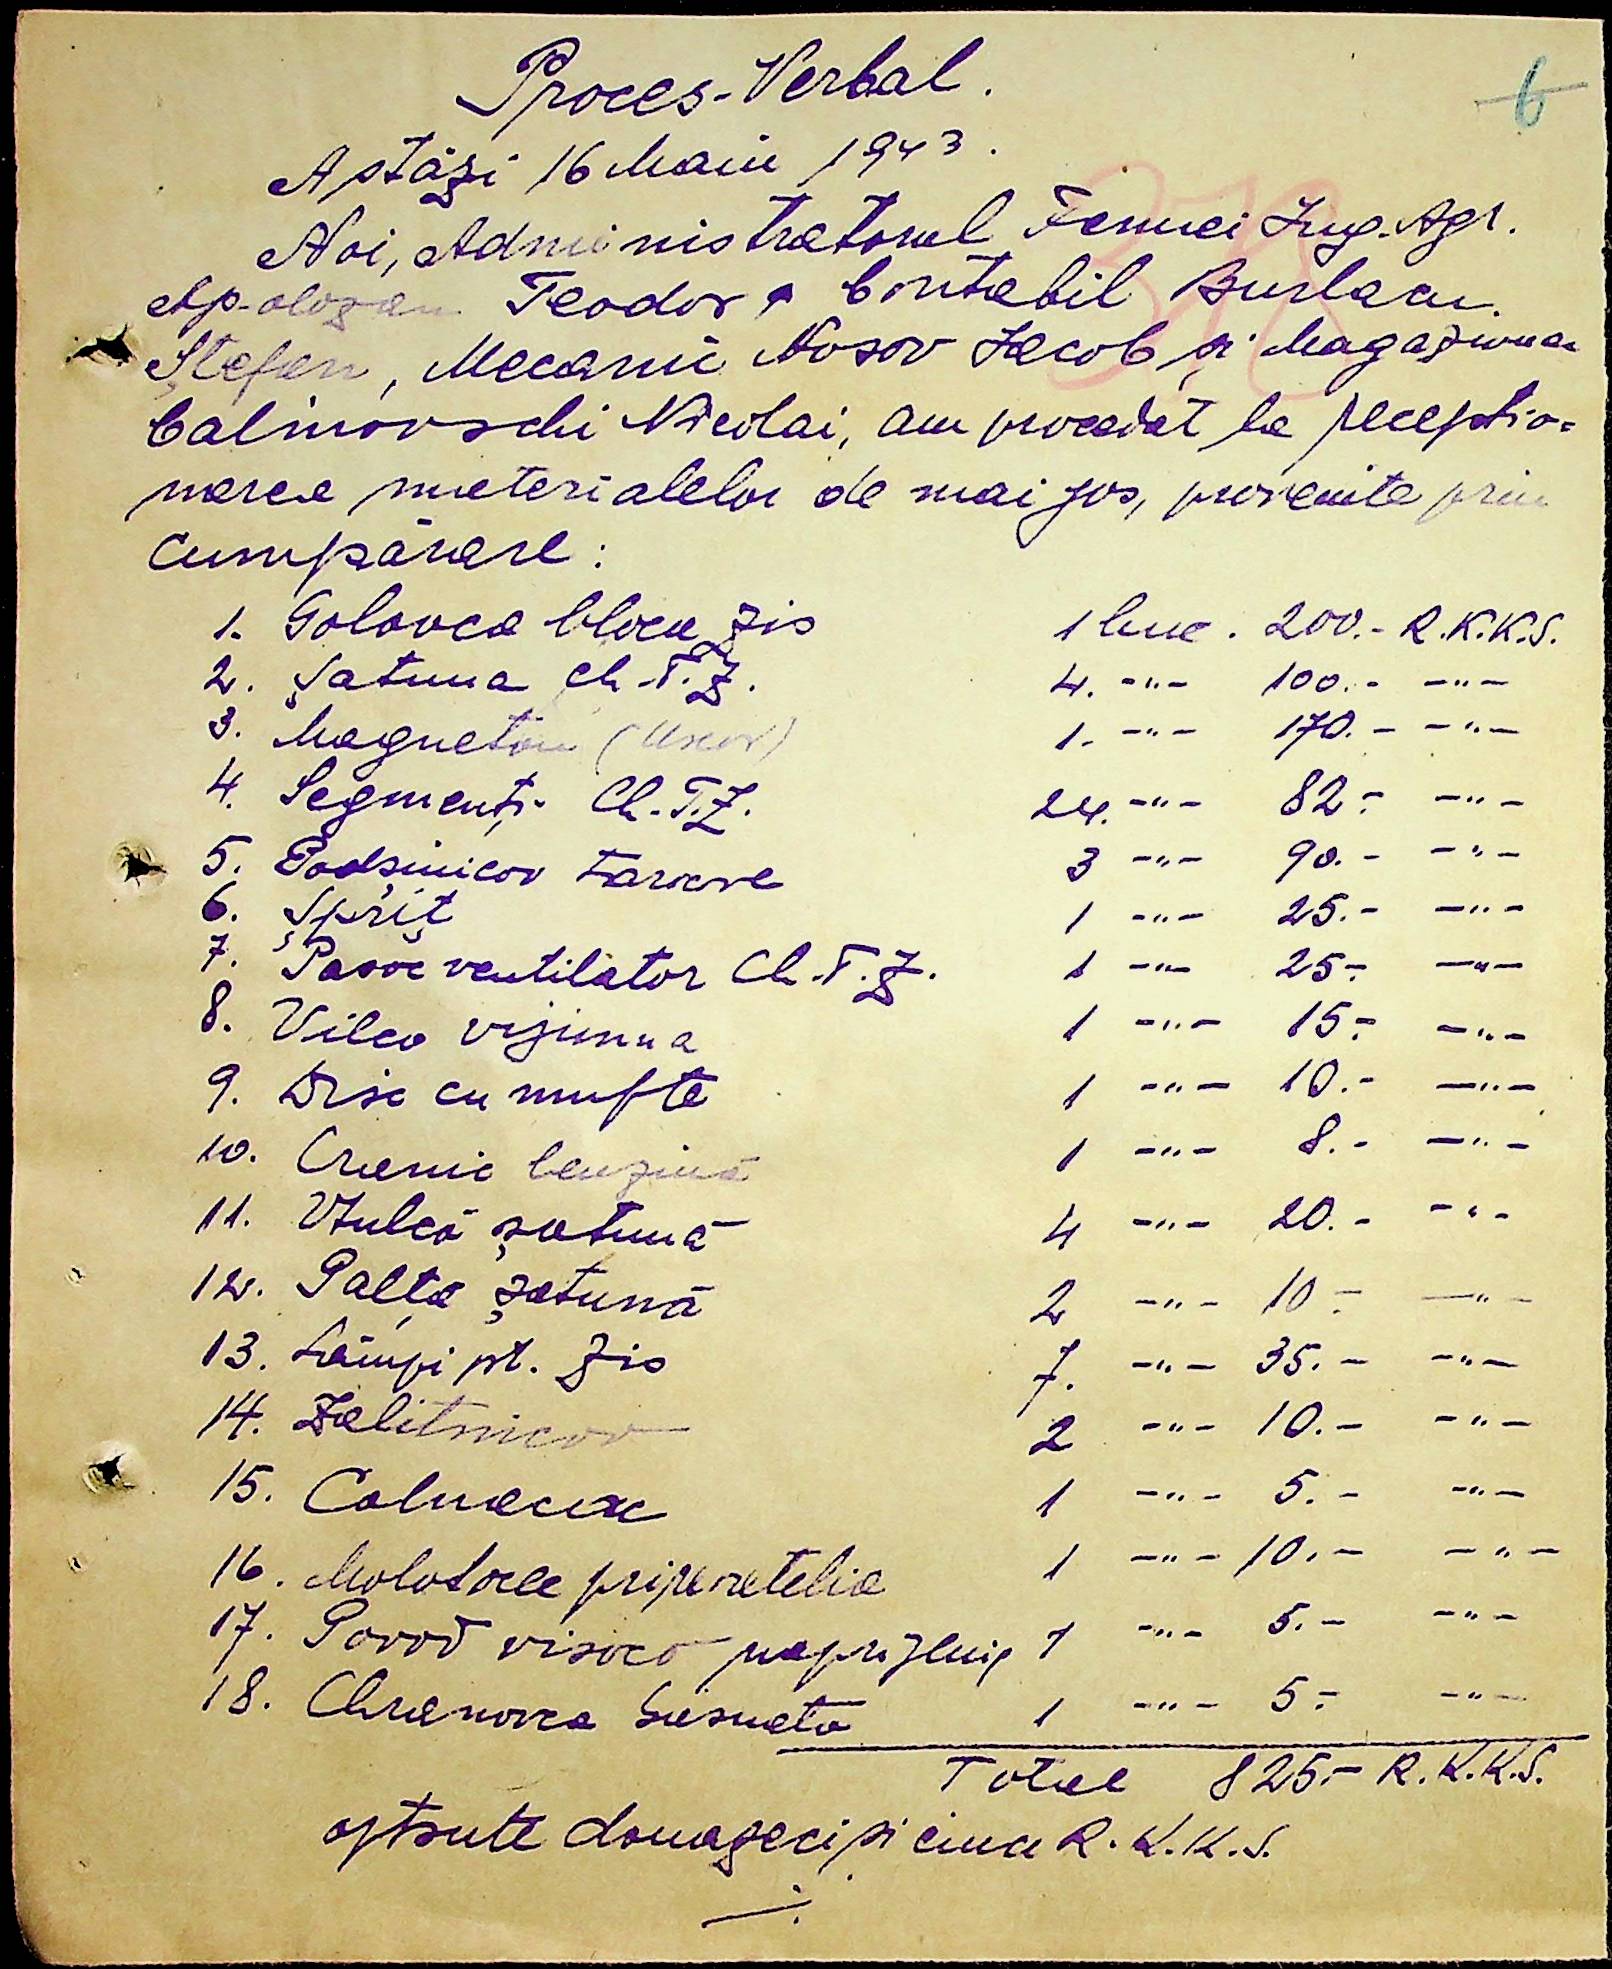 6
Proces-Verbal.
Astăzi 16 Maiu 1943.
Noi, Administratorul Fermei Ing. Agr.
Apolozan Teodor, Contabil Burlacu
Ștefan, Mecanic Nosov Iacob și Magaziner
Calinovschi Nicolai, am procedat la recepțio-
narea materialelor de mai jos, provenite prin
cumpărare:
1. Golovca bloca Zis 1 buc. 200.- R.K.K.S.
2. Șatuna Ch.T.Z. 4. -"- 100.- -"-
3. Magnetou 1. -"- 170.- -"-
4. Segmenți Ch.T.Z. 24. -"- 82.- -"-
5. Podșinicov 3 -"- 90.- -"-
6. Șpriț 1 -"- 25.- -"-
7. Pasoc ventilator Ch.T.Z. 1 -"- 25.- -"-
8. Vilco 1 -"- 15.- -"-
9. Disc cu mufta 1 -"- 10.- -"-
10. Cranic benzină 1 -"- 8.- -"-
11. Vtulcă șatună 4 -"- 20.- -"-
12. Palța șatună 2 -"- 10.- -"-
13. Lămpi pt. Zis 7. -"- 35.- -"-
14. Zalitnicov 2 -"- 10.- -"-
15. Colpac 1 -"- 5.- -"-
16. 1 -"- 10.- -"-
17. Povod visoco 1 -"- 5.- -"-
18. Chranovca 1 -"- 5.- -"-
Total 825.- R.K.K.S.
optsute douăzeci și cinci R.K.K.S.
./.